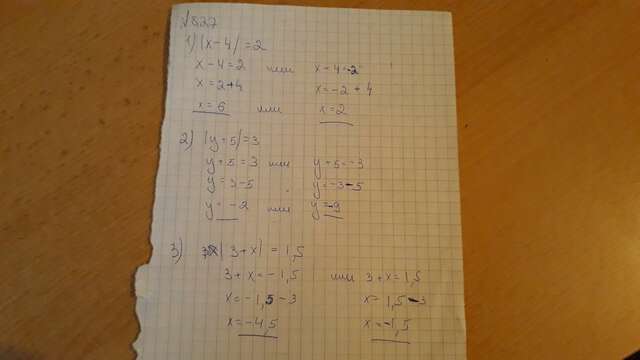 №827
1) |x-4| = 2
x-4=2 или x-4=-2
x=2+4 x=-2+4
x=6 или x=2
2) |y+5|=3
y+5=3 или y+5=-3
y=3-5 y=-3-5
y=-2 или y=-9
3) |3+x| = 1,5
3+x=-1,5 или 3+x=1,5
x=-1,5-3 x=1,5-3
x=-4,5 x=-1,5